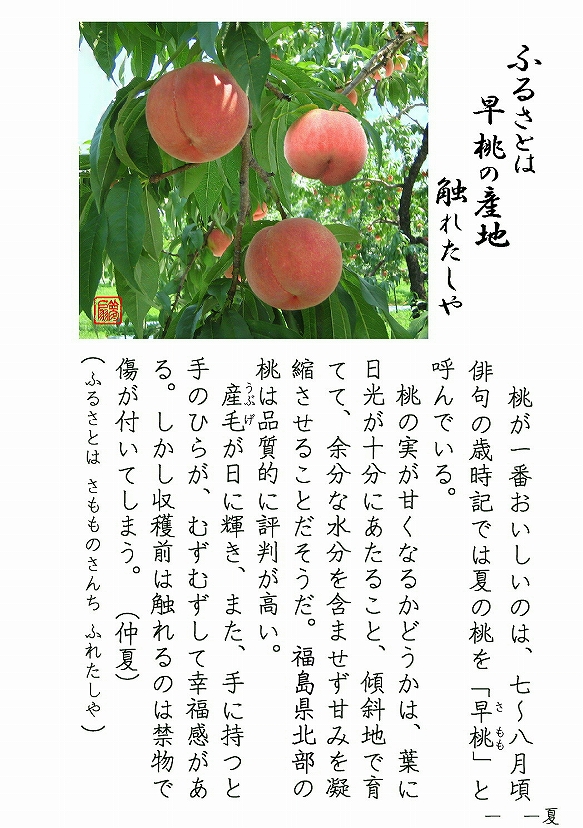 ふるさとは
早桃の産地
触れたしや
桃が一番おいしいのは、七〜八月頃
俳句の歳時記では夏の桃を「早桃」と
さ もも
呼んでいる。
桃の実が甘くなるかどうかは、葉に
日光が十分にあたること、傾斜地で育
てて、余分な水分を含ませず甘みを凝
縮させることだそうだ。福島県北部の
桃は品質的に評判が高い。
産毛が日に輝き、また、手に持つと
うぶげ
手のひらが、むずむずして幸福感があ
る。しかし収穫前は触れるのは禁物で
傷が付いてしまう。 (仲夏)
(ふるさとは さもものさんち ふれたしや)
一 一夏